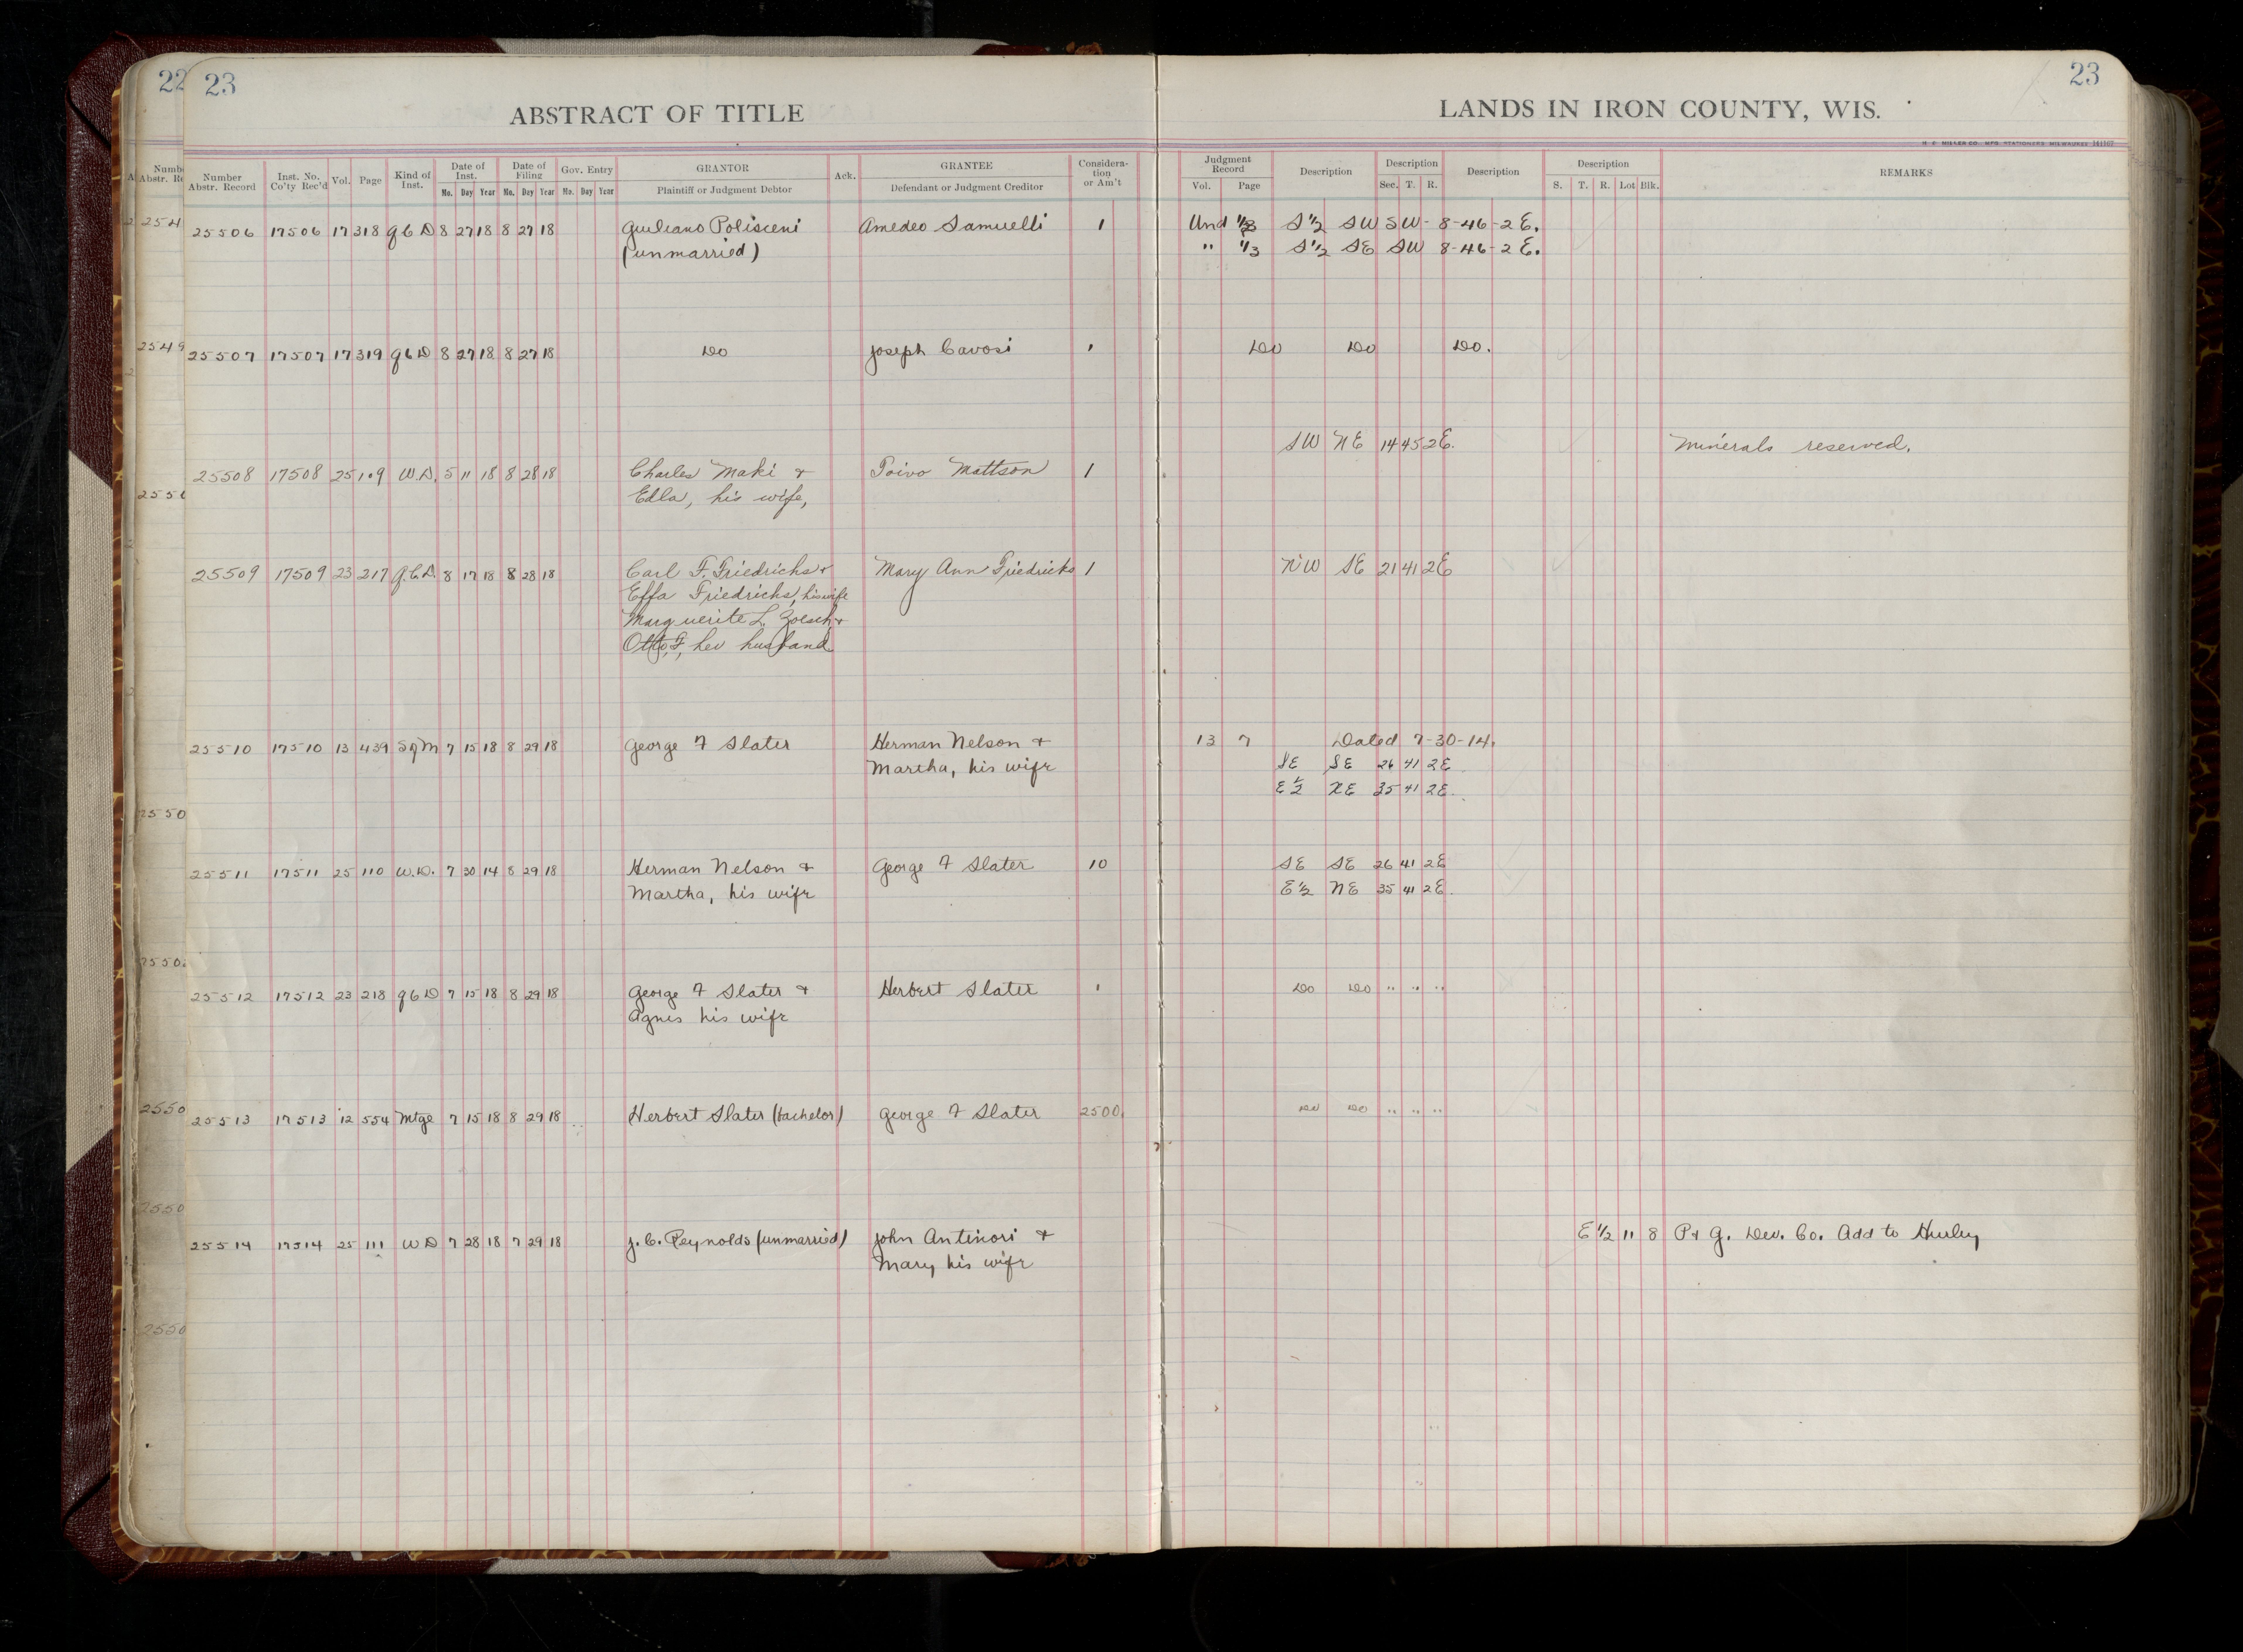 22 23
ABSTRACT OF TITLE
LANDS IN IRON COUNTY, WIS.
23
H. C. MILLER CO. MFG. STATIONERS MILWAUKEE
Number Abstr. Record | Inst. No. Co'ty Rec'd | Vol. | Page | Kind of Inst. | Date of Inst. Mo. Day Year | Date of Filing Mo. Day Year | Gov. Entry Mo. Day Year | GRANTOR Plaintiff or Judgment Debtor | Ack. | GRANTEE Defendant or Judgment Creditor | Considera-tion or Am't | Judgment Record Vol. Page | Description | Description Sec. T. R. | Description | Description S. T. R. Lot Blk. | REMARKS
25506 17506 17 318 Q C D 8 27 18 8 27 18 Guiliano Polisceni Amedeo Samuelli 1 Und 1/3 S 1/2 SW SW - 8-46-2 E.
(unmarried) " 1/3 S 1/2 SE SW 8-46-2 E.
25507 17507 17 319 Q C D 8 27 18 8 27 18 Do Joseph Cavosi 1 Do Do Do.
SW NE 14 45 2E. Minerals reserved.
25508 17508 25 109 W.D. 5 11 18 8 28 18 Charles Maki & Toivo Mattson 1
Edla, his wife,
25509 17509 23 217 Q.C.D. 8 17 18 8 28 18 Carl F. Friedrichs & Mary Ann Friedricks 1 NW SE 21 41 2E
Effa Friedrichs, his wife
Marguerite L. Zoesch &
Otto F, her husband
25510 17510 13 439 S of M 7 15 18 8 29 18 George F Slater Herman Nelson & 13 7 Dated 7-30-14.
Martha, his wife SE SE 26 41 2E
E 1/2 NE 35 41 2E.
25511 17511 25 110 W.D. 7 30 14 8 29 18 Herman Nelson & George F Slater 10 SE SE 26 41 2E
Martha, his wife E 1/2 NE 35 41 2E.
25512 17512 23 218 Q C D 7 15 18 8 29 18 George F Slater & Herbert Slater 1 Do Do " " "
Agnes his wife
25513 17513 12 554 Mtge 7 15 18 8 29 18 Herbert Slater (bachelor) George F Slater 2500 Do Do " " "
25514 17514 25 111 W D 7 28 18 7 29 18 J. C. Reynolds (unmarried) John Antinori & E 1/2 11 8 P & G. Dev. Co. Add to Hurley
Mary his wife